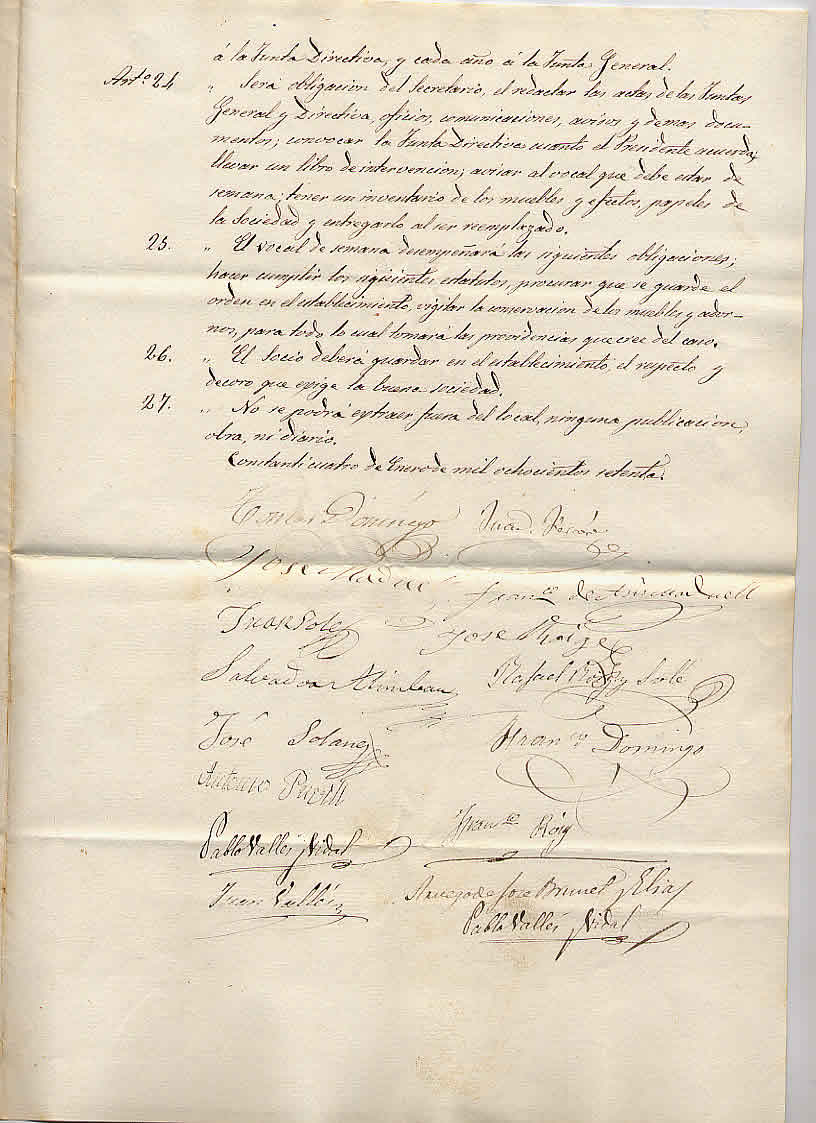 á la Junta Directiva, y cada año á la Junta General.
Art.º 24 „ Será obligacion del Secretario, el redactar las actas de las Juntas
General y Directiva, oficios, comunicaciones, avisos y demas docu-
mentos; convocar la Junta Directiva cuanto el Presidente acuerda;
llevar un libro de intervencion; avisar al vocal que debe estar de
semana; tener un inventario de los muebles y efectos, papeles de
la Sociedad y entregarlo al ser reemplazado.
25. „ El vocal de semana desempeñará las siguientes obligaciones;
hacer cumplir los siguientes estatutos, procurar que se guarde el
orden en el establecimiento, vigilar la conservacion de los muebles y ador-
nos, para todo lo cual tomará las providencias que cree del caso.
26. „ El Socio deberá guardar en el establecimiento, el respecto y
decoro que exige la buena sociedad.
27. „ No se podrá extraer fuera del local, ninguna publicacion,
obra, ni diario.
Constantí cuatro de Enero de mil ochocientos setenta.
Domingo Juan
José Fran.co de
Juan Solé José
Salvador Rafael Roig y Solé
José Solanes Fran.co Domingo
Antonio
Pablo Vallés y Vidal Fran.co Roig
Juan Vallés A ruego de Jose Brunet y Elias
Pablo Vallés y Vidal